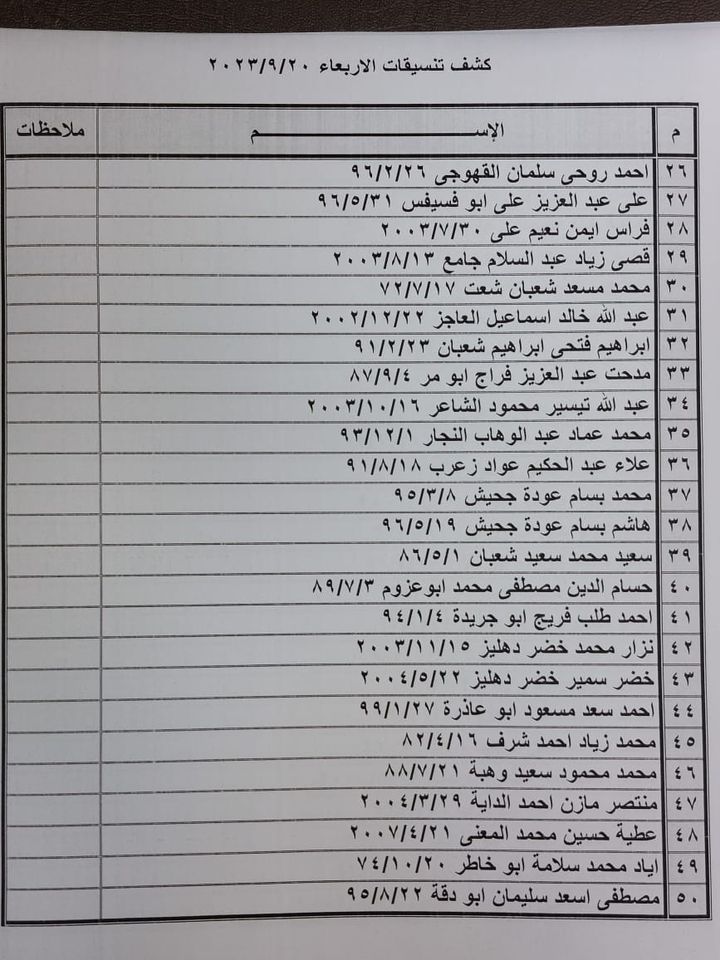 كشف تنسيقات الاربعاء ٢٠٢٣/٩/٢٠
م الإســـــــم ملاحظات
٢٦ احمد روحى سلمان القهوجى ٩٦/٢/٢٦
٢٧ على عبد العزيز على ابو فسيفس ٩٦/٥/٣١
٢٨ فراس ايمن نعيم على ٢٠٠٣/٧/٣٠
٢٩ قصى زياد عبد السلام جامع ٢٠٠٣/٨/١٣
٣٠ محمد مسعد شعبان شعت ٧٢/٧/١٧
٣١ عبد الله خالد اسماعيل العاجز ٢٠٠٢/١٢/٢٢
٣٢ ابراهيم فتحى ابراهيم شعبان ٩١/٢/٢٣
٣٣ مدحت عبد العزيز فراج ابو مر ٨٧/٩/٤
٣٤ عبد الله تيسير محمود الشاعر ٢٠٠٣/١٠/١٦
٣٥ محمد عماد عبد الوهاب النجار ٩٣/١٢/١
٣٦ علاء عبد الحكيم عواد زعرب ٩١/٨/١٨
٣٧ محمد بسام عودة جحيش ٩٥/٣/٨
٣٨ هاشم بسام عودة جحيش ٩٦/٥/١٩
٣٩ سعيد محمد سعيد شعبان ٨٦/٥/١
٤٠ حسام الدين مصطفى محمد ابوعزوم ٨٩/٧/٣
٤١ احمد طلب فريج ابو جريدة ٩٤/١/٤
٤٢ نزار محمد خضر دهليز ٢٠٠٣/١١/١٥
٤٣ خضر سمير خضر دهليز ٢٠٠٤/٥/٢٢
٤٤ احمد سعد مسعود ابو عاذرة ٩٩/١/٢٧
٤٥ محمد زياد احمد شرف ٨٢/٤/١٦
٤٦ محمد محمود سعيد وهبة ٨٨/٧/٢١
٤٧ منتصر مازن احمد الداية ٢٠٠٤/٣/٢٩
٤٨ عطية حسين محمد المعنى ٢٠٠٧/٤/٢١
٤٩ اياد محمد سلامة ابو خاطر ٧٤/١٠/٢٠
٥٠ مصطفى اسعد سليمان ابو دقة ٩٥/٨/٢٢